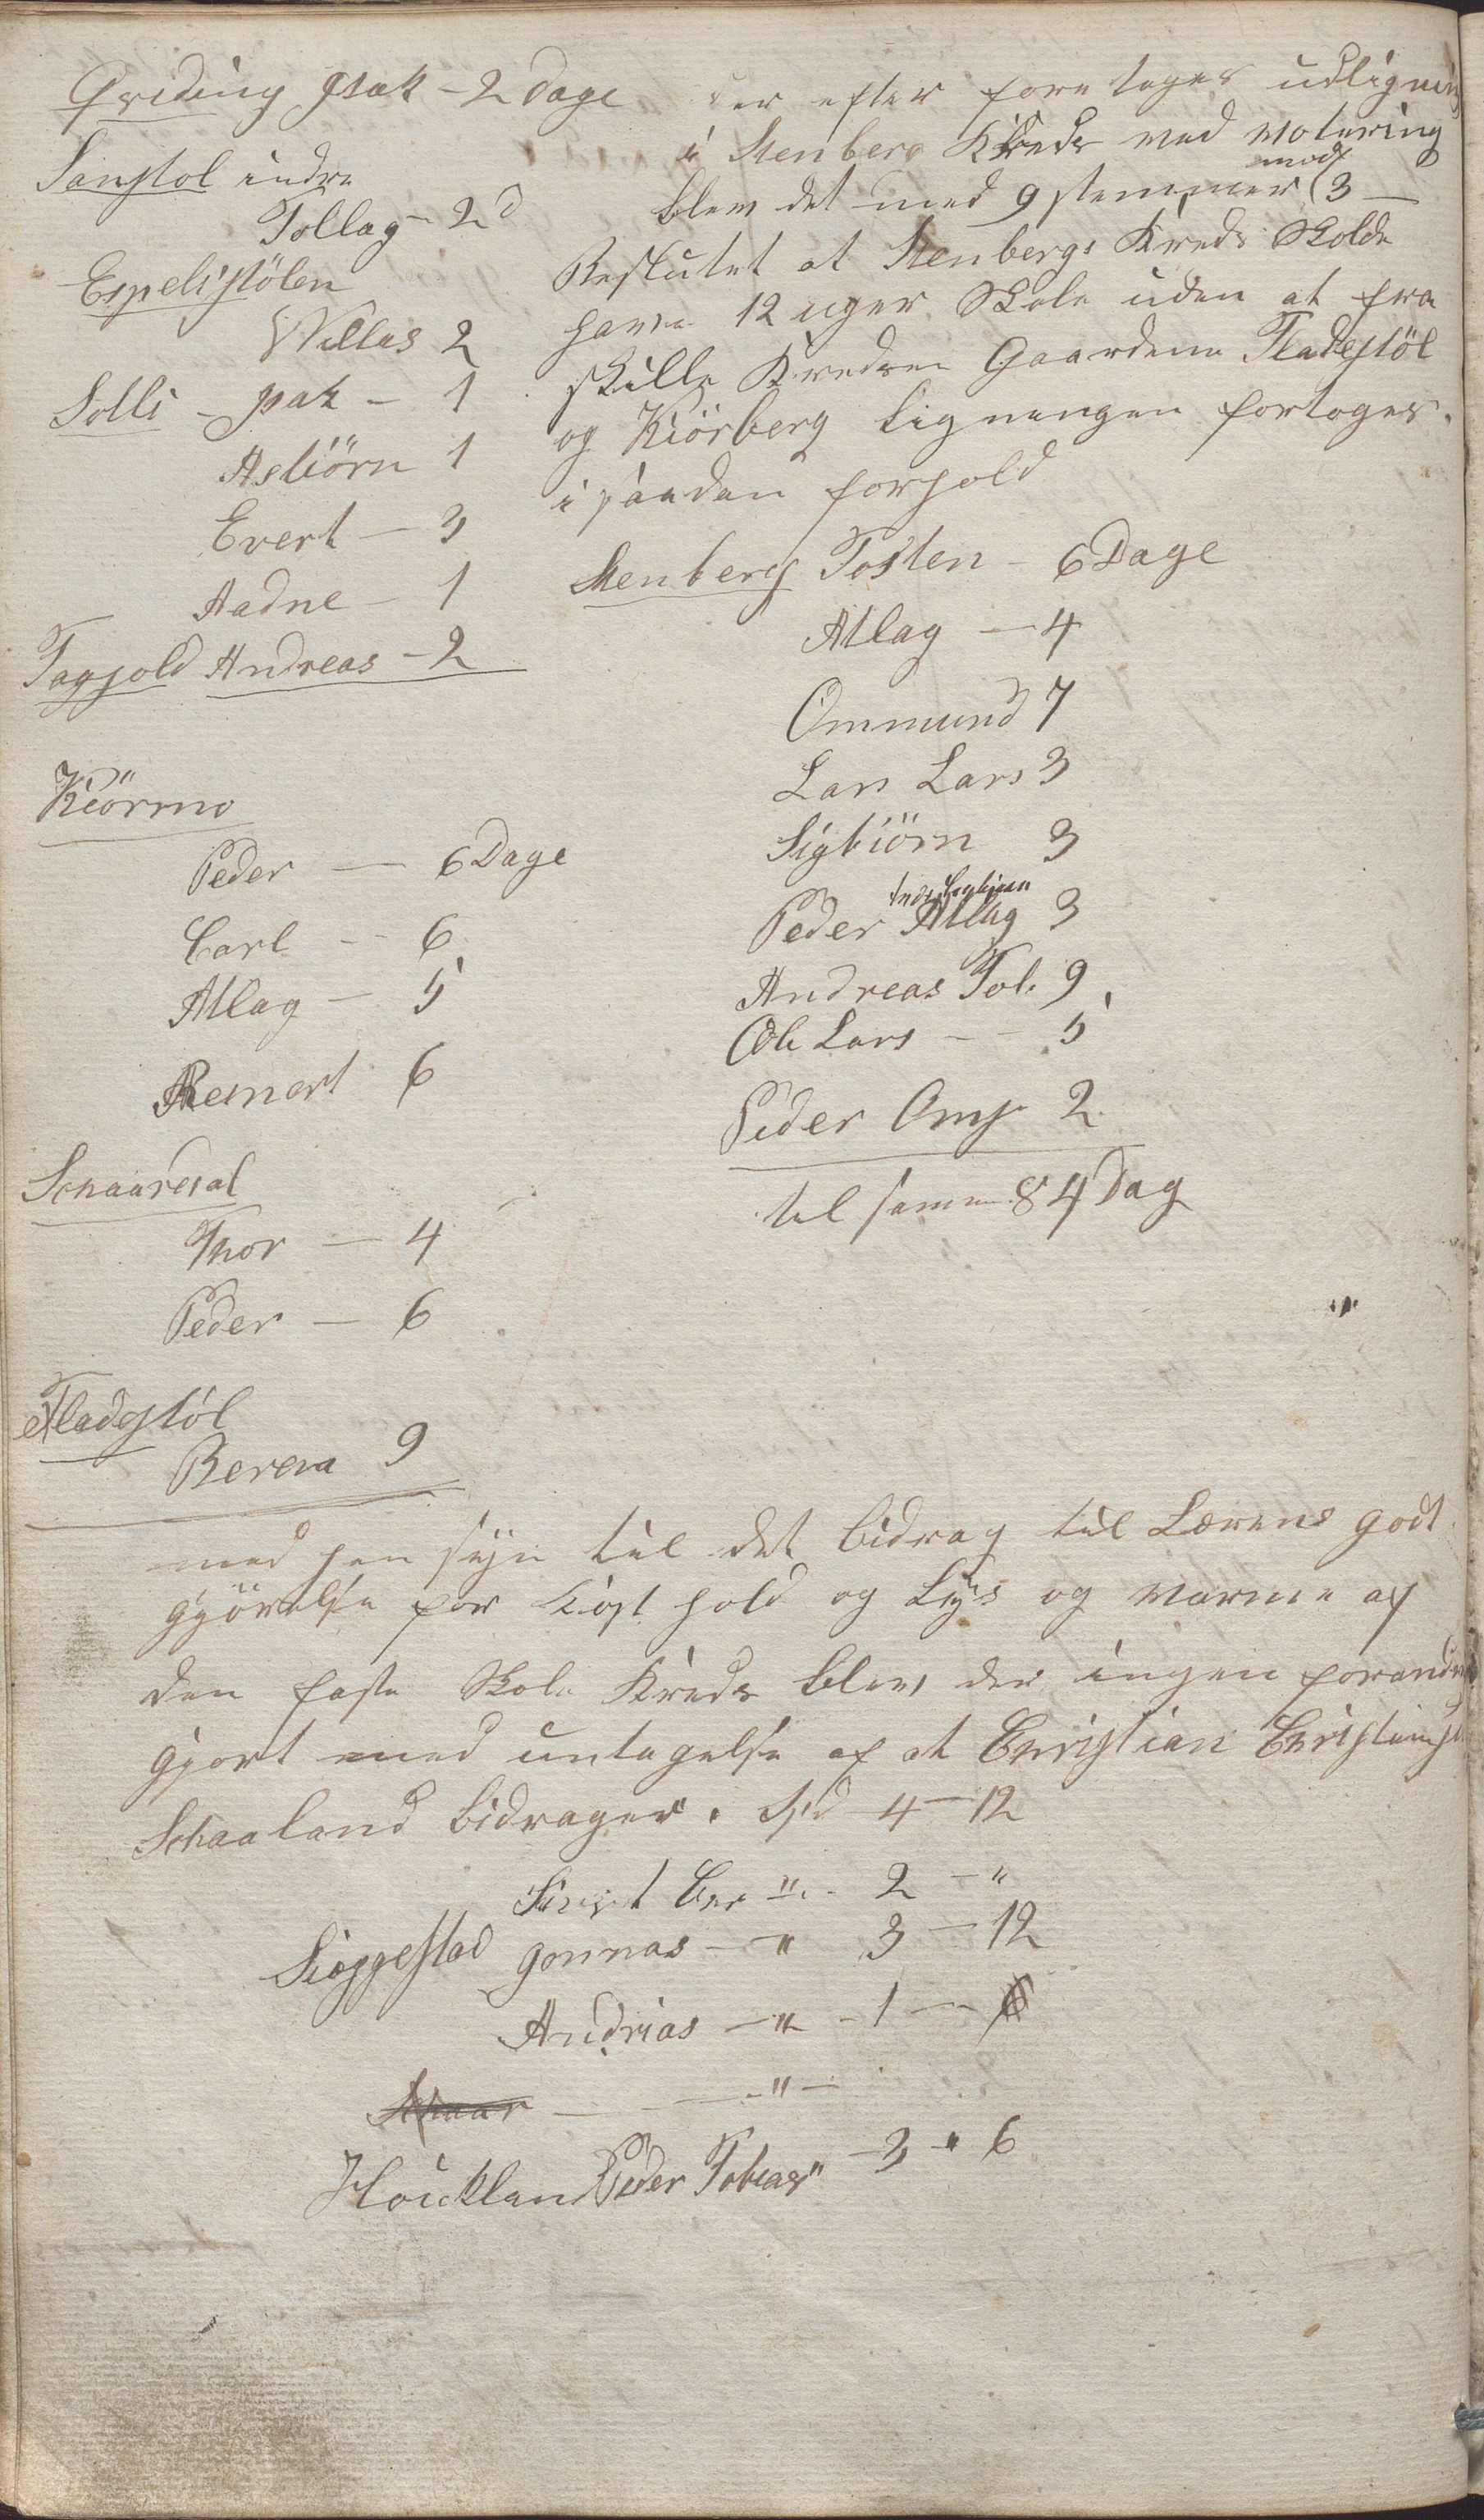 Qviding Isak - 2 Dage
Sanstøl indre
Tollag - 2d
Espelistölen
Willas 2
Solli - Isak - 1
Asbiörn 1
Evert - 3
Aadne - 1
Taghold Andreas - 2
Kiörmo
Peder - 6 Dage
Carl - 6
Atlag - 5
Reinert 6
Schaaredal
Thor - 4
Peder - 6
Fladestöl
Berena 9
der efter foretages udligning
i Stenberg Kreds ved Votering
blev det med 9 stemmer mod 3 -
Beslutet at Stenbergs Kreds Skolde
have 12 uger Skole uden at fra
skille Kredsen Gaardene Fladestöl
og Kiörberg Ligningen fortoges.
i saadan forhold
Stenberg Tosten - 6 Dage
Atlag - 4
Ommund 7
Lars Lars 3
Sigbiörn 3
Peder 3
Andreas Tob. 9
Ole Lars - - 5
Peder Oms 2
til samen 84 Dag
med hen syn til det bidrag til Lærens godt
gjörelse for Kost hold og Lys og varme af
den faste Skole Kreds blev der ingen forandr
gjort med untagelse af at Christian Christians
Schaaland bidrager. Spd 4 - 12
Sivert Ber " - 2 - "
Sioggestad Jonnas - " 3 - 12
Andrias - " - 1 - 6
Schaar - - " -
Höickland Peder Tobias " - 3 " 6